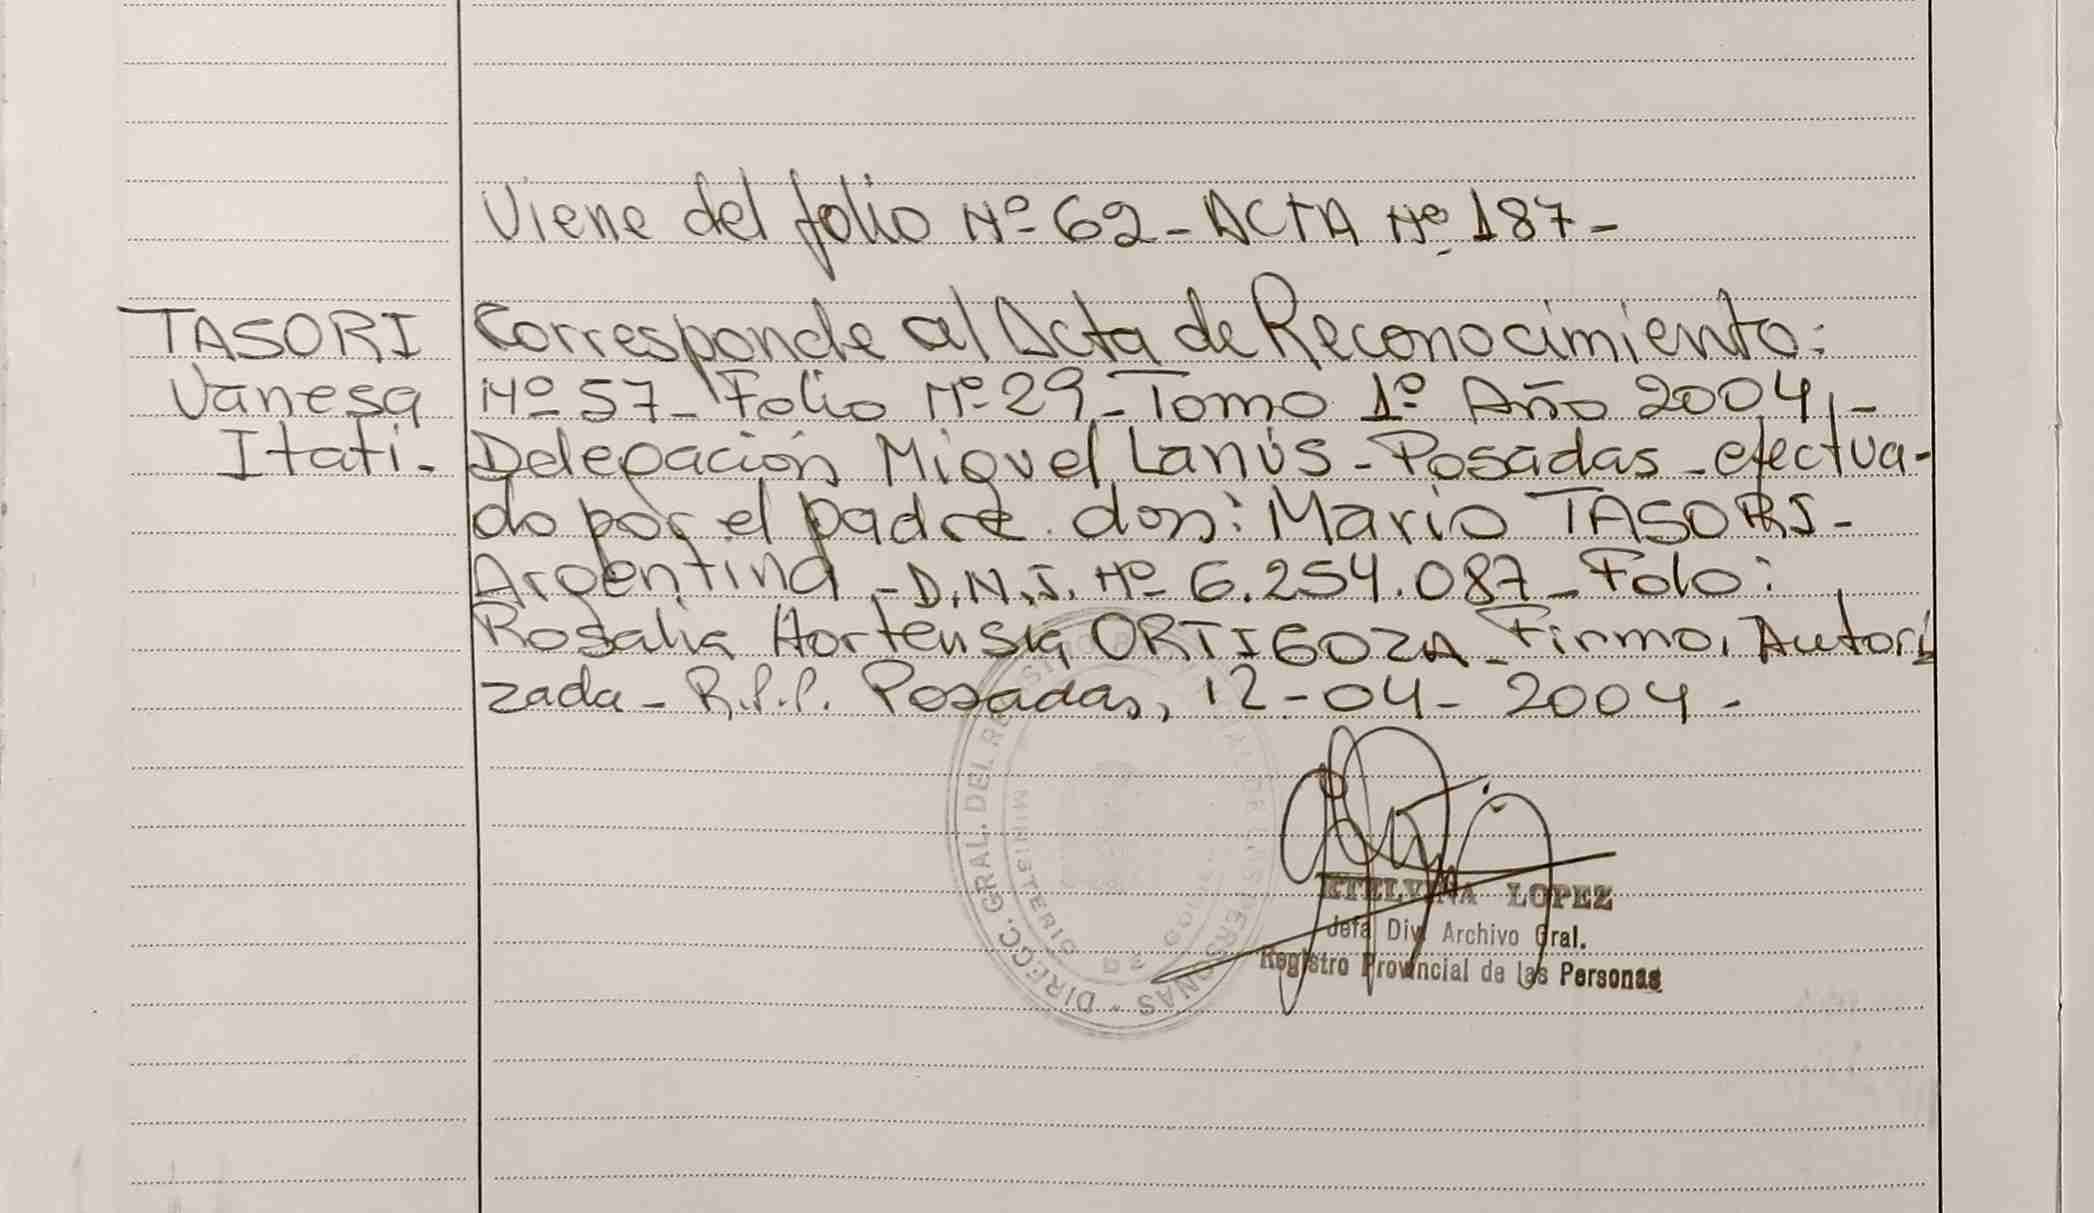 Viene del folio Nº 62 - ACTA Nº 187 -
TASORI
Vanesa
Itati.
Corresponde al Acta de Reconocimiento:
Nº 57 - Folio Nº 29 - Tomo 1º Año 2004, -
Delegación Miguel Lanús - Posadas - efectua-
do por el padre don: Mario TASORI -
Argentina - D.N.I. Nº 6.254.087 - Fdo:
Rosalia Hortensia ORTIGOZA - Firma Autori
zada - R.P.P. Posadas, 12-04-2004 -
ETELVINA LOPEZ
Jefa Div. Archivo Gral.
Registro Provincial de las Personas
DIRECC. GRAL. DEL PERSONAS
MINISTERIO DE